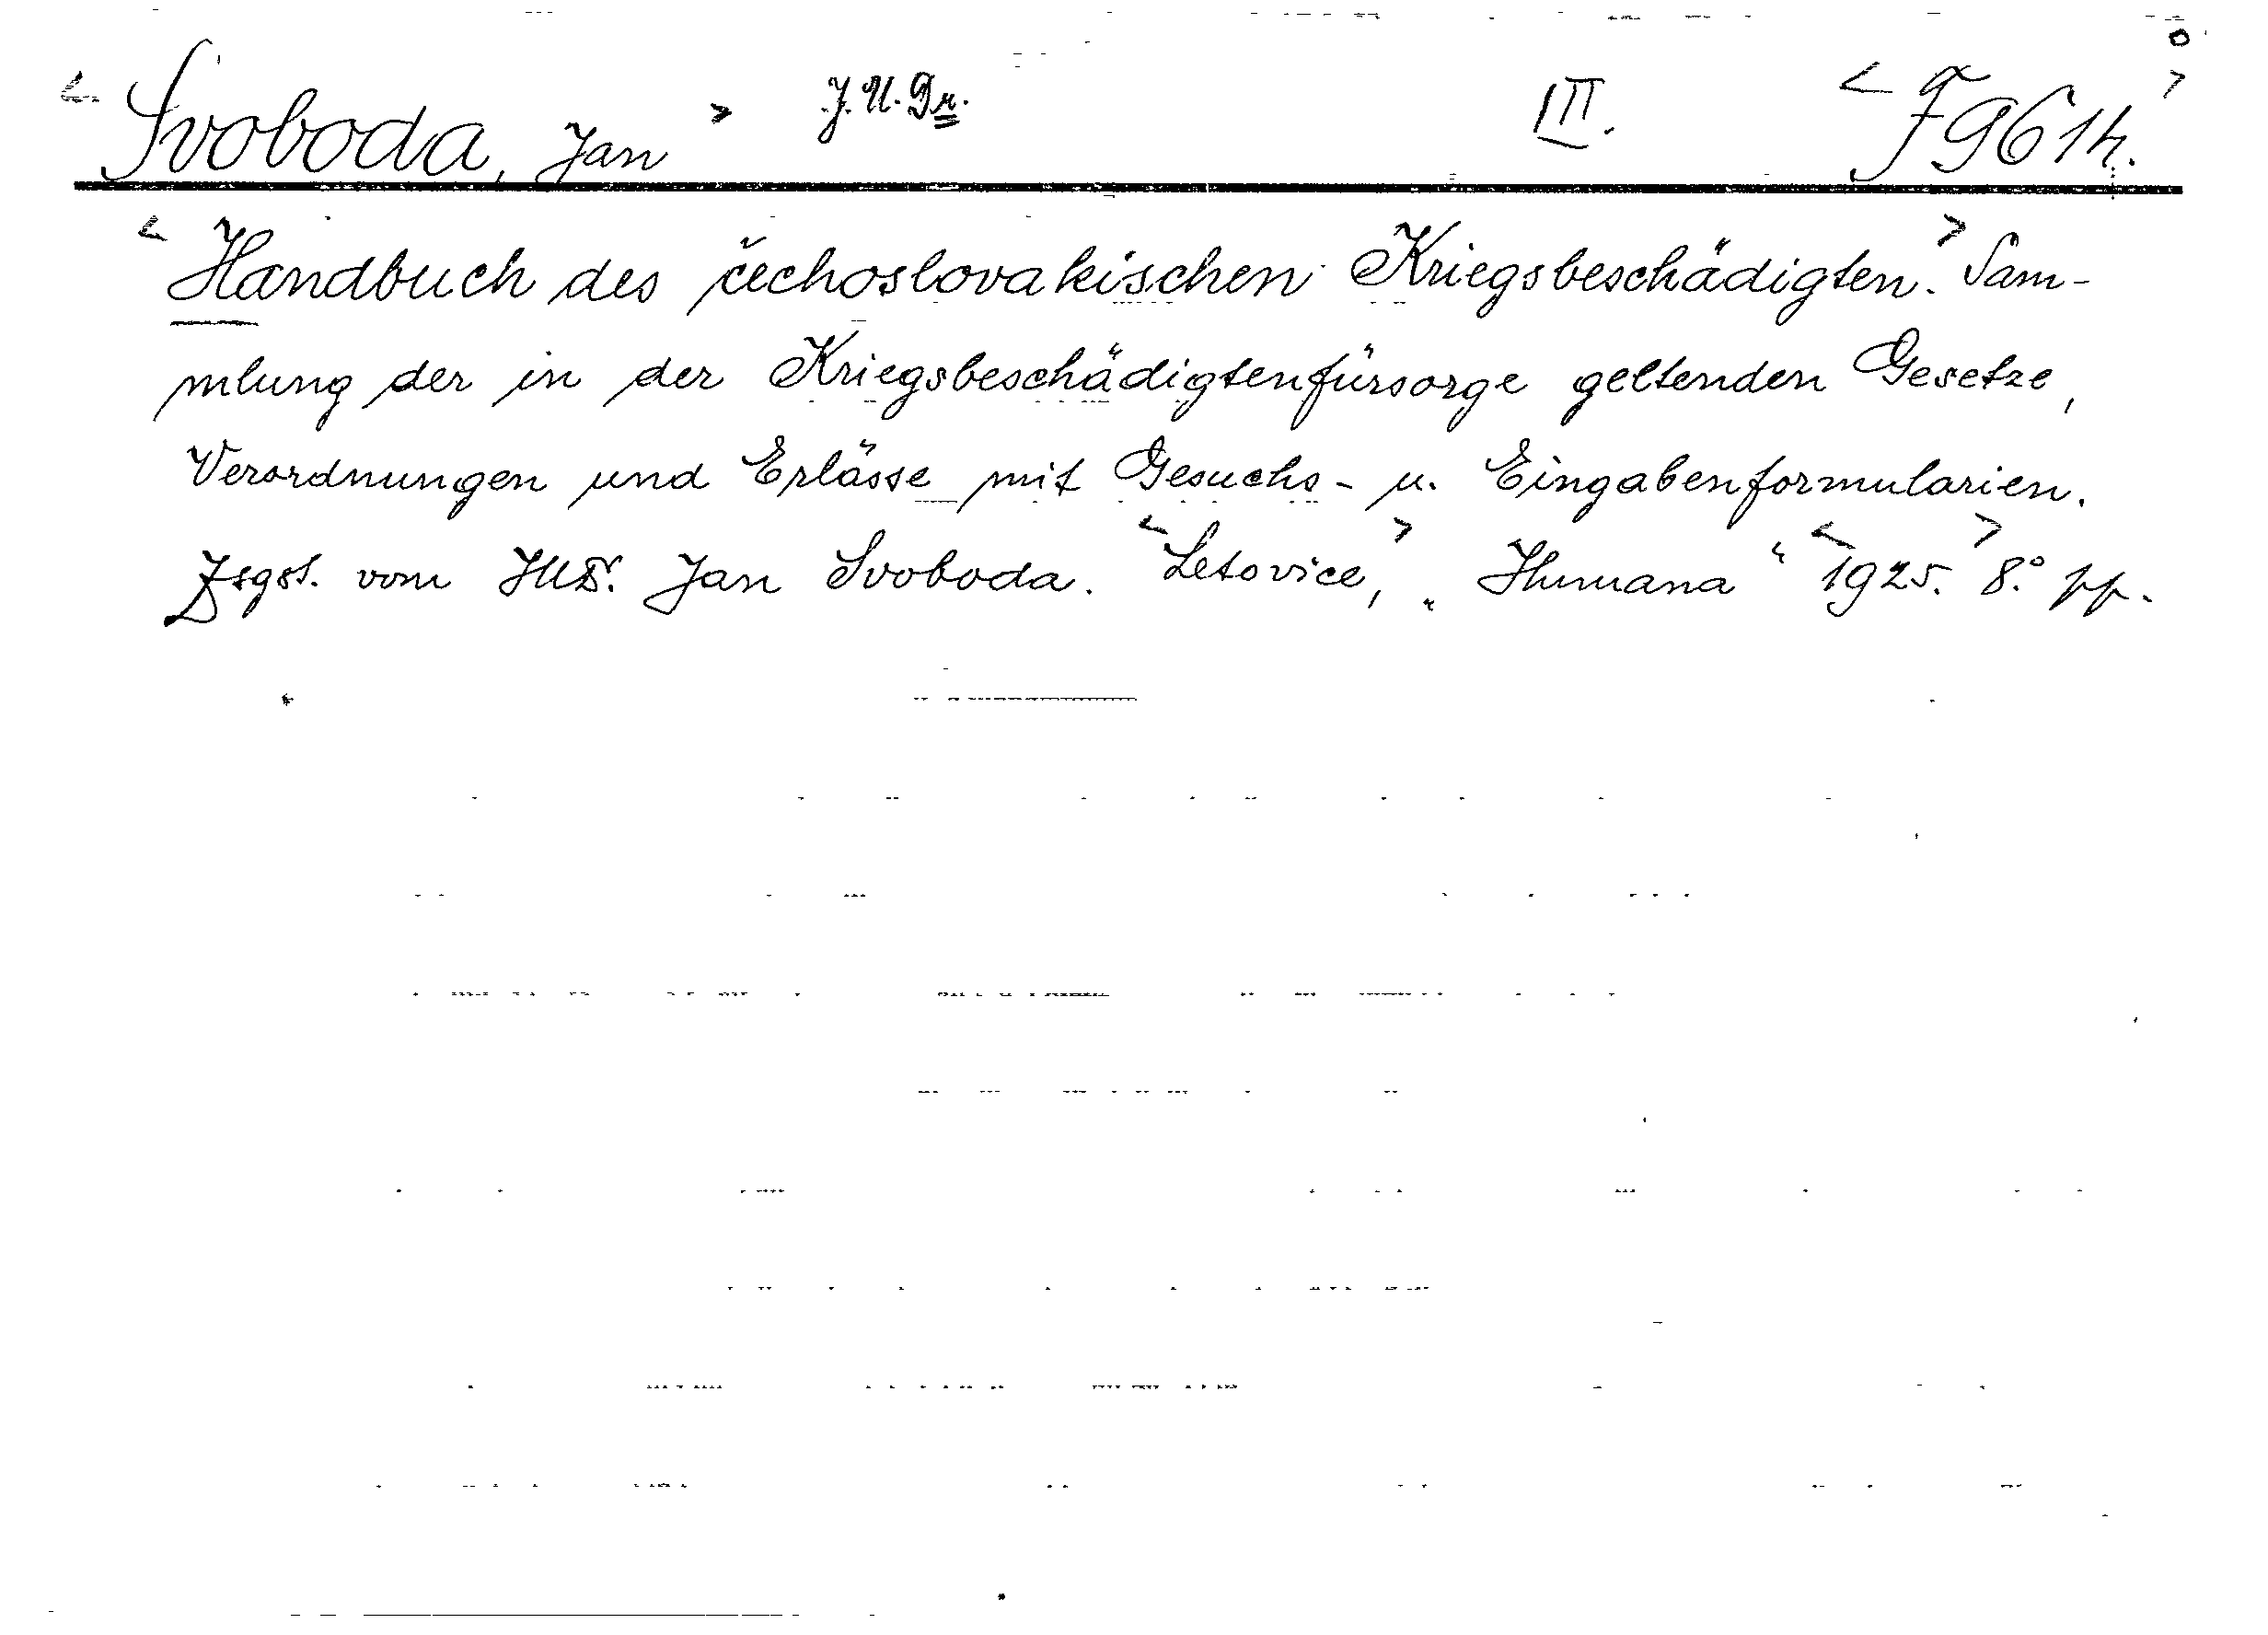 < Svoboda, Jan > J.U.Dr. III. < F 96 1h. >
< Handbuch des čechoslovakischen Kriegsbeschädigten. > Sam-
mlung der in der Kriegsbeschädigtenfürsorge geltenden Gesetze,
Verordnungen und Erlässe mit Gesuchs- u. Eingabenformularien.
Zsgst. vom JUDr. Jan Svoboda. < Letovice, > „Humana“ < 1925. > 8.° pp.